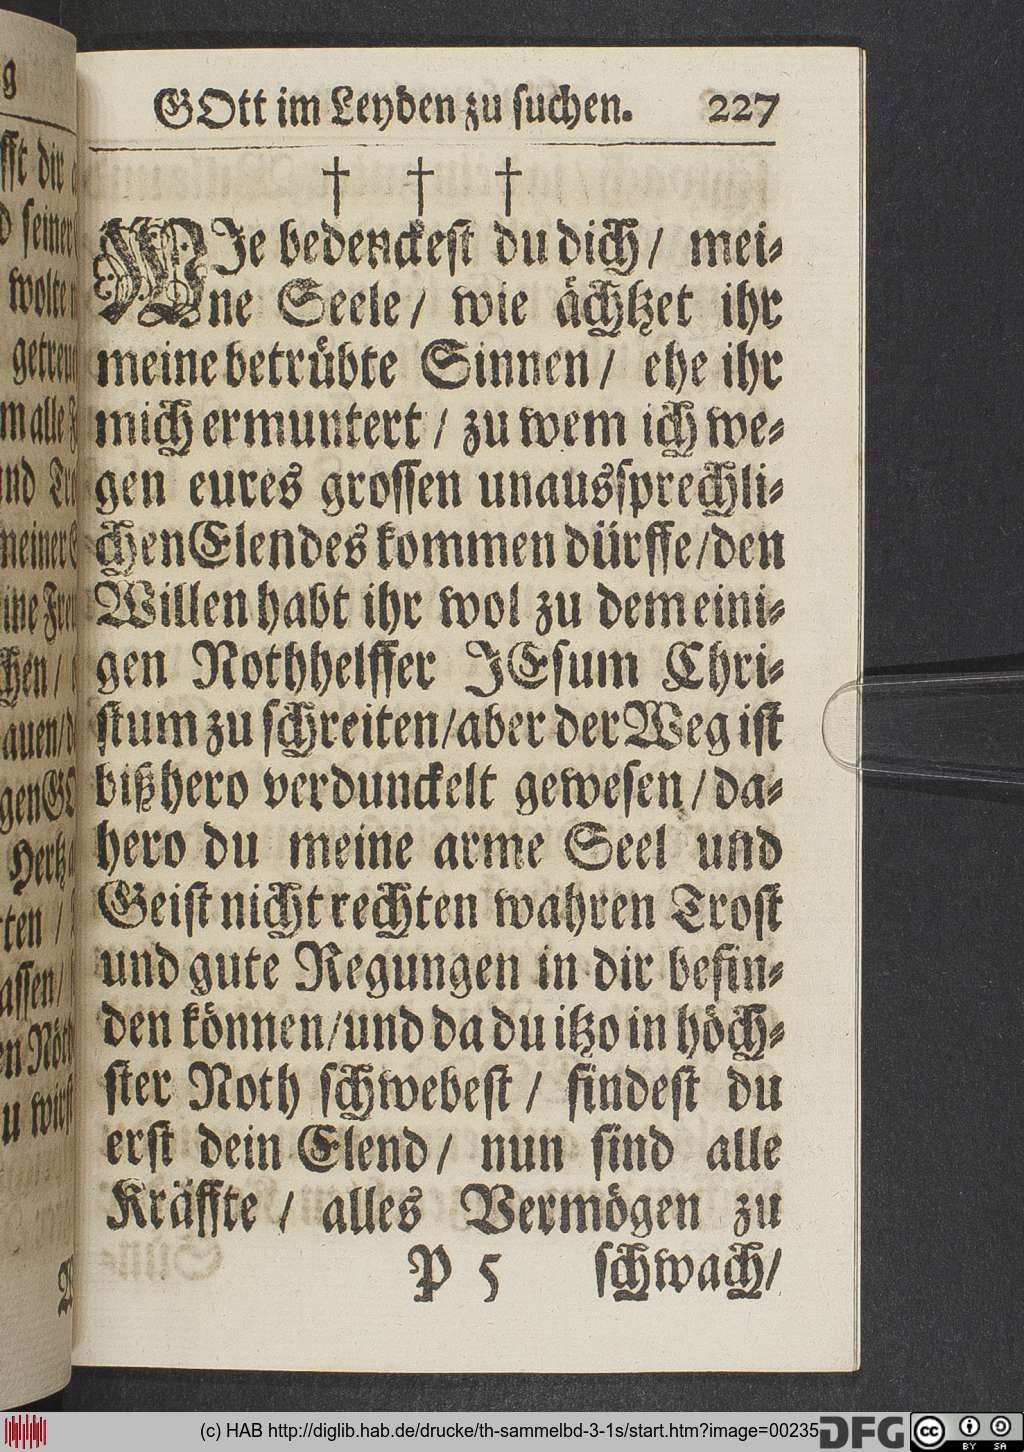 GOtt im Leyden zu suchen. 227
† † †
WIe bedenckest du dich/ mei-
ne Seele/ wie ächtzet ihr
meine betrübte Sinnen/ ehe ihr
mich ermuntert/ zu wem ich we-
gen eures grossen unaussprechli-
chen Elendes kommen dürffe/den
Willen habt ihr wol zu dem eini-
gen Nothhelffer JEsum Chri-
stum zu schreiten/aber der Weg ist
bißhero verdunckelt gewesen/da-
hero du meine arme Seel und
Geist nicht rechten wahren Trost
und gute Regungen in dir befin-
den können/und da du itzo in höch-
ster Noth schwebest/ findest du
erst dein Elend/ nun sind alle
Kräffte/ alles Vermögen zu
P 5 schwach/
(c) HAB http://diglib.hab.de/drucke/th-sammelbd-3-1s/start.htm?image=00235
DFG
cc
BY SA